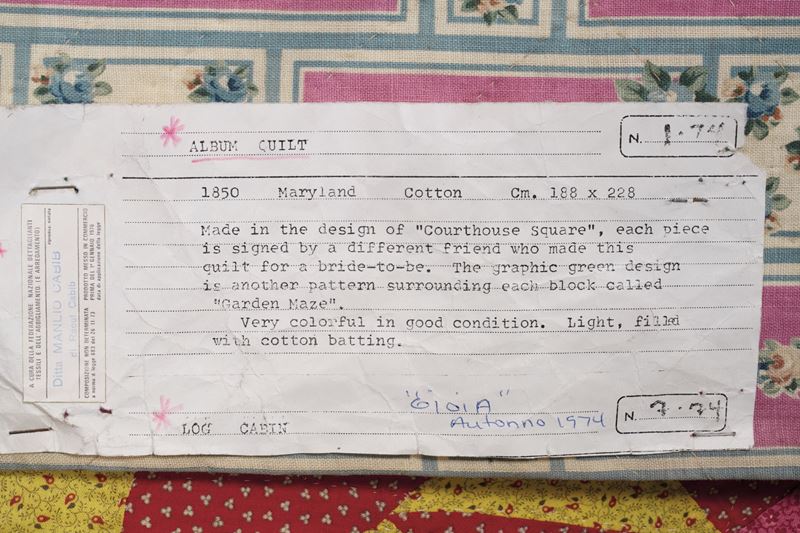 ALBUM QUILT
N. 1.74
1850 Maryland Cotton Cm. 188 x 228
Made in the design of "Courthouse Square", each piece
is signed by a different friend who made this
quilt for a bride-to-be. The graphic green design
is another pattern surrounding each block called
"Garden Maze".
Very colorful in good condition. Light, filled
with cotton batting.
"GioiA"
Autonno 1974
LOG CABIN
N. 7.74
A CURA DELLA FEDERAZIONE NAZIONALE DETTAGLIANTI
TESSILI E DELL'ABBIGLIAMENTO (E ARREDAMENTO)
riproduz. vietata
Ditta MANLIO CABIB
di Raoul Cabib
COMPOSIZIONE NON DETERMINATA PRODOTTO MESSO IN COMMERCIO
a norma d. legge 883 del 26 11 73 PRIMA DEL 1° GENNAIO 1976
data di applicazione della legge